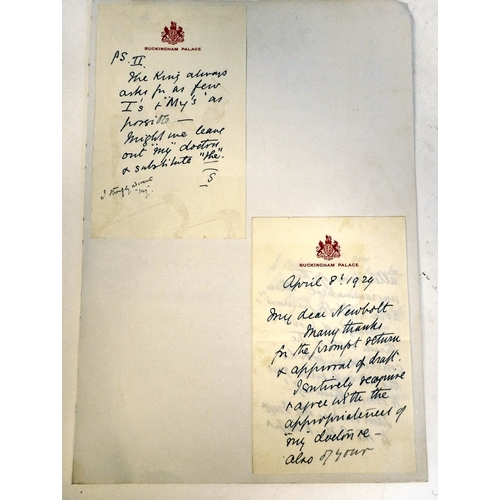 BUCKINGHAM PALACE
PS. II.
The King always
asks for as few
I's & "My's" as
possible —
Might we leave
out "my" doctors
& substitute "the"
BUCKINGHAM PALACE
April 8th 1929
My dear Newbolt
Many thanks
for the prompt return
& approval of draft.
I entirely recognise
& agree with the
appropriateness of
"my" doctors —
also of your